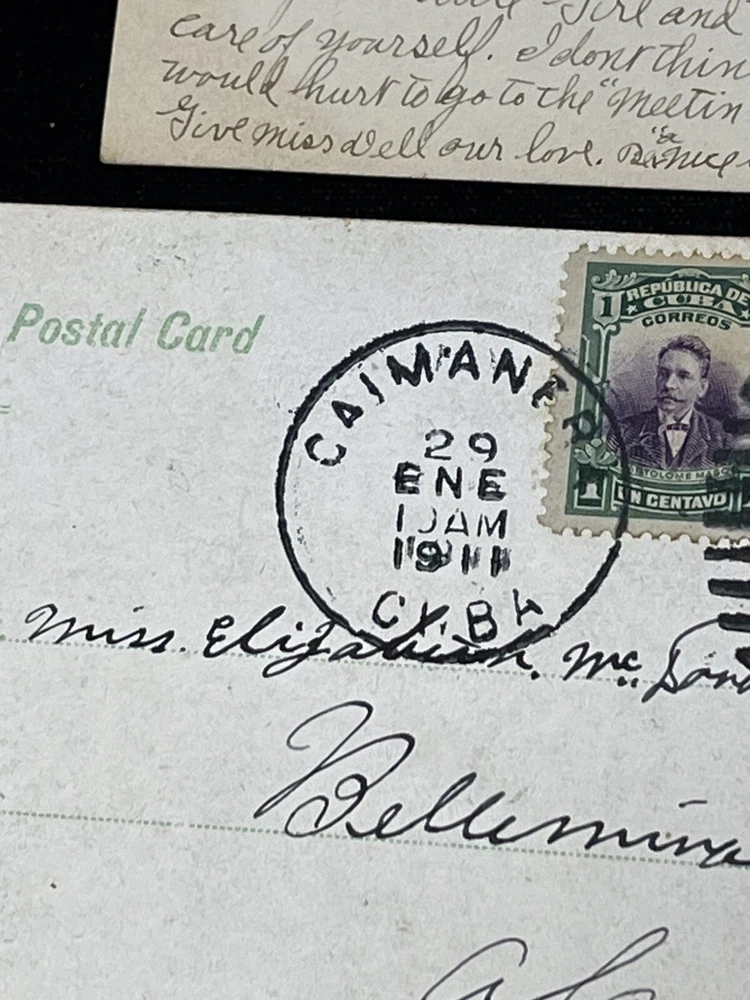 Girl and
care of yourself. I dont thin
would hurt to go to the "Meetin
Give miss Dell our love.
Postal Card
1
REPÚBLICA DE
CUBA
CORREOS
BARTOLOME MASO
1
UN CENTAVO
CAIMANER
29
ENE
10AM
1911
CUBA
Miss. Elizabeth. Mc. Dona
Bellemina